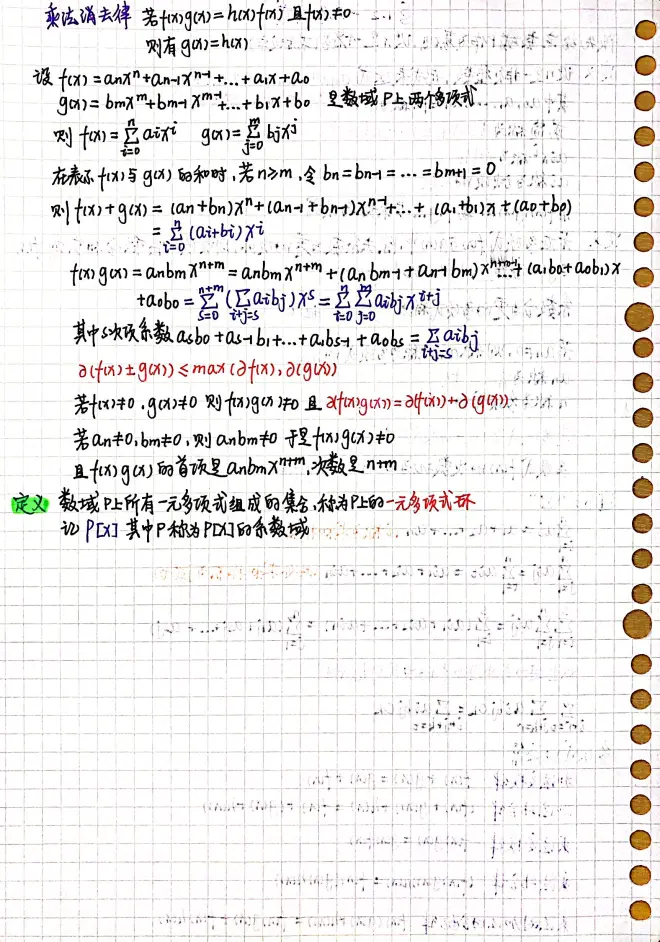 乘法消去律 若f(x)g(x)=h(x)f(x)且f(x)≠0
则有g(x)=h(x)
设 f(x)=anxⁿ+an-1xⁿ⁻¹+...+a1x+a0
g(x)=bmxᵐ+bm-1xᵐ⁻¹+...+b1x+b0 是数域P上两个多项式
则 f(x)=∑_{i=0}^{n} aixⁱ g(x)=∑_{j=0}^{m} bjxʲ
在表示f(x)与g(x)的和时,若n≥m,令bn=bn-1=...=bm+1=0
则f(x)+g(x)=(an+bn)xⁿ+(an-1+bn-1)xⁿ⁻¹+...+(a1+b1)x+(a0+b0)
=∑_{i=0}^{n}(ai+bi)xⁱ
f(x)g(x)=anbmxⁿ⁺ᵐ=anbmxⁿ⁺ᵐ+(anbm-1+an-1bm)xⁿ⁺ᵐ⁻¹+...+(a1b0+a0b1)x
+a0b0=∑_{s=0}^{n+m}(∑_{i+j=s}aibj)xˢ=∑_{i=0}^{n}∑_{j=0}^{m}aibjxⁱ⁺ʲ
其中s次项系数asb0+as-1b1+...+a1bs-1+a0bs=∑_{i+j=s}aibj
∂(f(x)±g(x))≤max(∂f(x),∂(g(x))
若f(x)≠0,g(x)≠0 则f(x)g(x)≠0 且∂(f(x)g(x))=∂(f(x))+∂(g(x))
若an≠0,bm≠0,则anbm≠0 于是f(x)g(x)≠0
且f(x)g(x)的首项是anbmxⁿ⁺ᵐ,次数是n+m
定义 数域P上所有一元多项式组成的集合,称为P上的一元多项式环
记P[x] 其中P称为P[x]的系数域